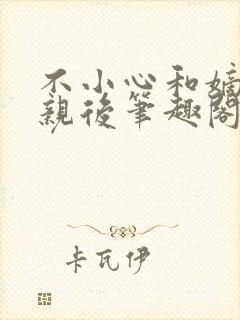 不小心和嫡
親後筆趣閣
卡瓦伊